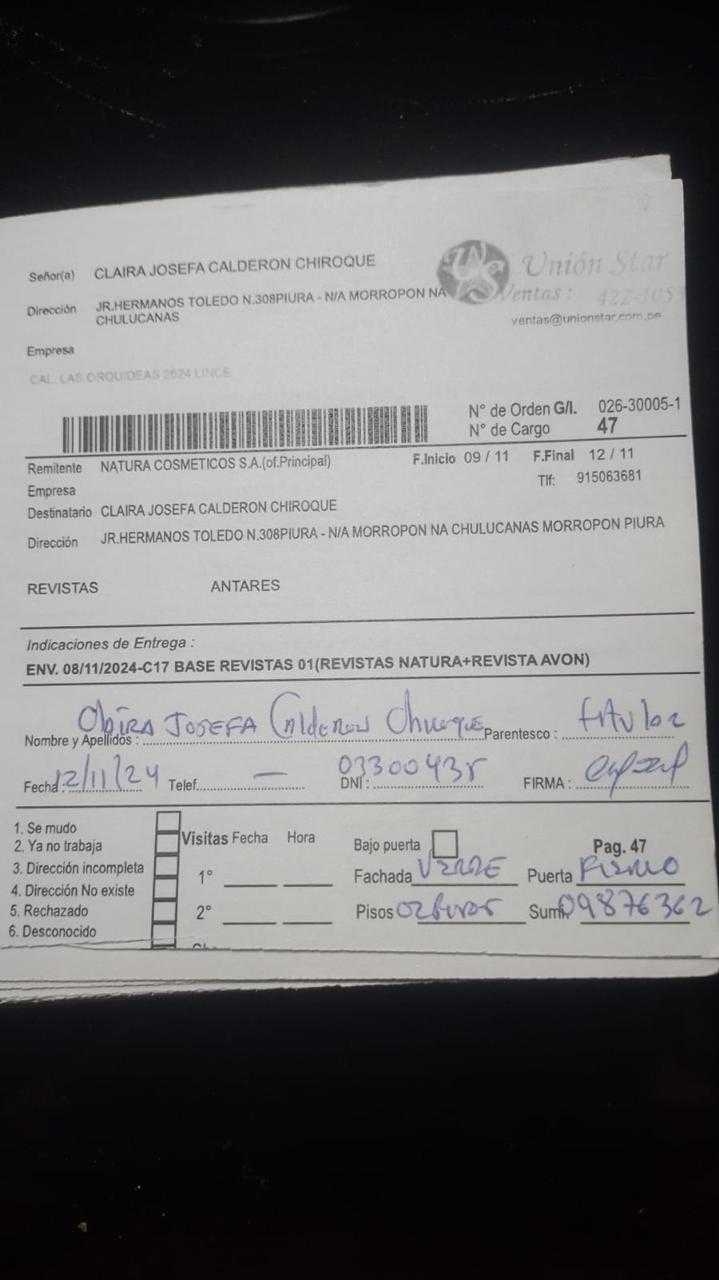 Señor(a) CLAIRA JOSEFA CALDERON CHIROQUE
Unión Star
Dirección JR.HERMANOS TOLEDO N.308PIURA - N/A MORROPON NA
CHULUCANAS
Ventas: 422-105
ventas@unionstar.com.pe
Empresa
CAL. LAS ORQUIDEAS 2624 LINCE
N° de Orden G/I. 026-30005-1
N° de Cargo 47
Remitente NATURA COSMETICOS S.A.(of.Principal) F.Inicio 09 / 11 F.Final 12 / 11
Empresa Tlf: 915063681
Destinatario CLAIRA JOSEFA CALDERON CHIROQUE
Dirección JR.HERMANOS TOLEDO N.308PIURA - N/A MORROPON NA CHULUCANAS MORROPON PIURA
REVISTAS ANTARES
Indicaciones de Entrega :
ENV. 08/11/2024-C17 BASE REVISTAS 01(REVISTAS NATURA+REVISTA AVON)
Nombre y Apellidos : JOSEFA Calderon Parentesco : titular
Fecha: 12/11/24 Telef. — DNI : 03300435 FIRMA :
1. Se mudo
2. Ya no trabaja
3. Dirección incompleta
4. Dirección No existe
5. Rechazado
6. Desconocido
Visitas Fecha Hora
1°
2°
Bajo puerta Pag. 47
Fachada VERDE Puerta FIERRO
Pisos 02 Sum 09876362